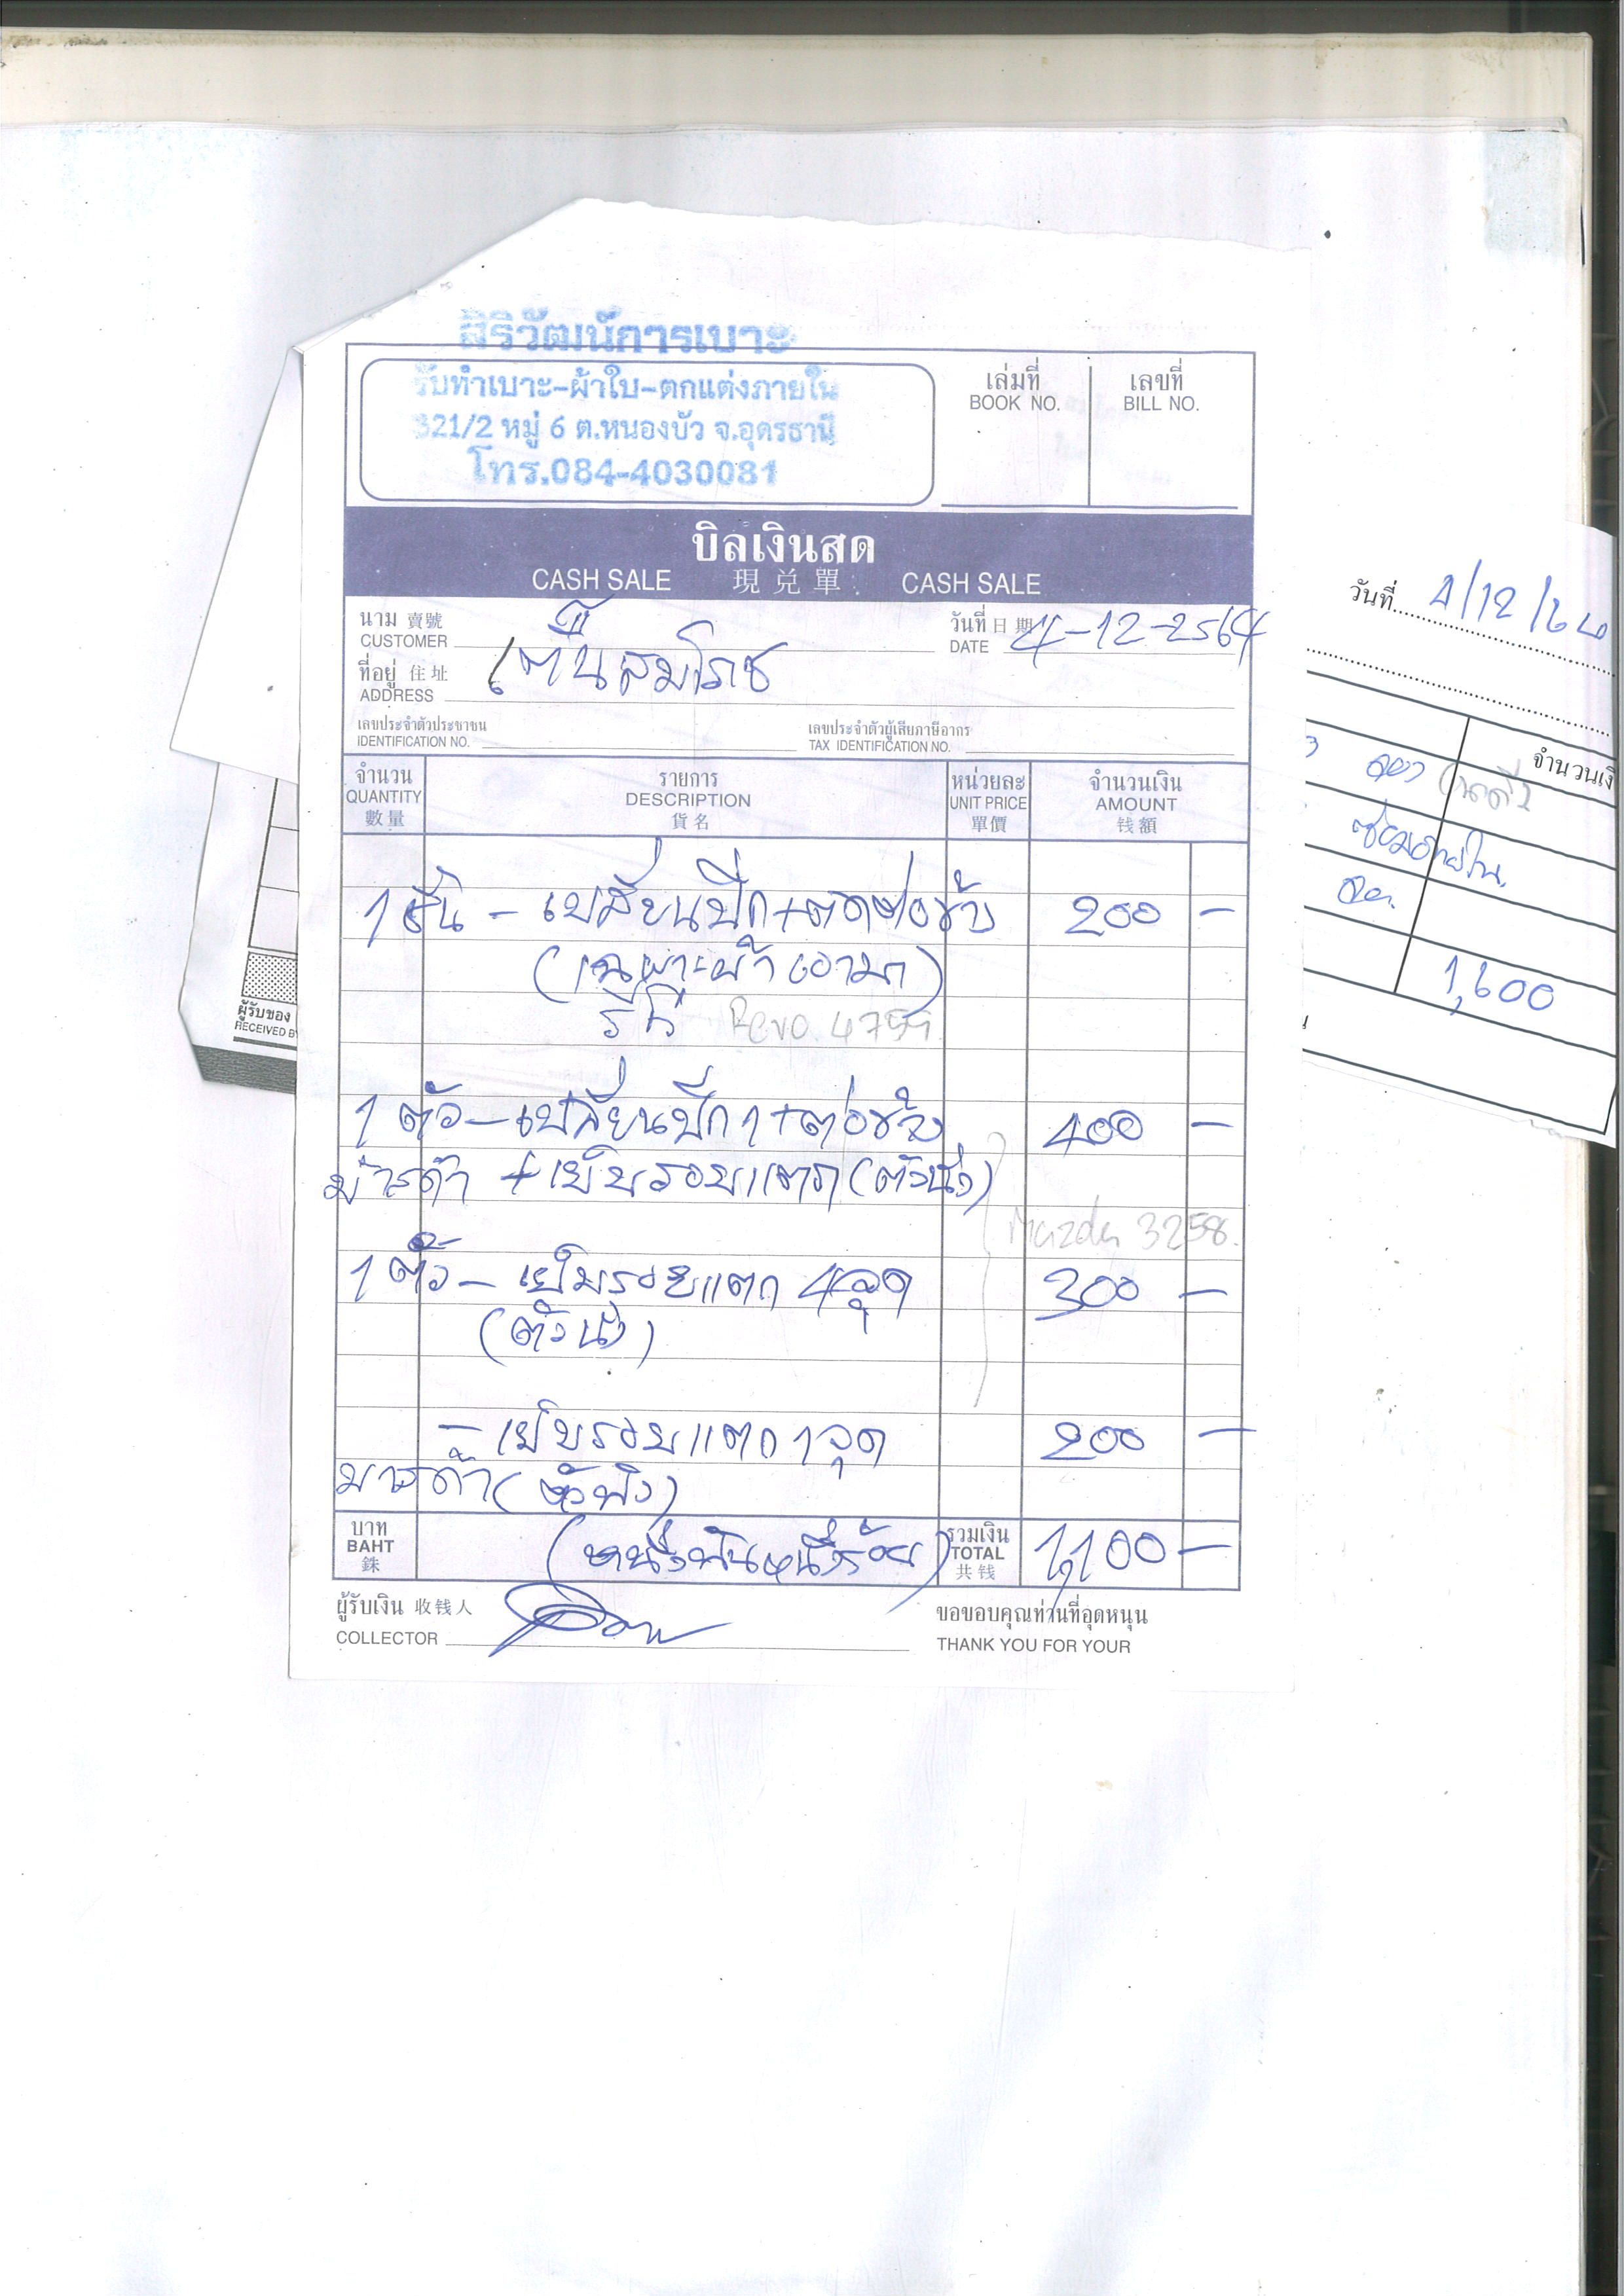 สิริวัฒน์การเบาะ
รับทำเบาะ-ผ้าใบ-ตกแต่งภายใน
321/2 หมู่ 6 ต.หนองบัว จ.อุดรธานี
โทร.084-4030081
เล่มที่
BOOK NO.
เลขที่
BILL NO.
บิลเงินสด
CASH SALE 現兑單 CASH SALE
นาม 賣號
CUSTOMER
วันที่ 日期
DATE 4-12-2564
ที่อยู่ 住址
ADDRESS
เต็นสมโภช
เลขประจำตัวประชาชน
IDENTIFICATION NO.
เลขประจำตัวผู้เสียภาษีอากร
TAX IDENTIFICATION NO.
จำนวน
QUANTITY
數量
รายการ
DESCRIPTION
貨名
หน่วยละ
UNIT PRICE
單價
จำนวนเงิน
AMOUNT
钱額
1 ชิ้น - เปลี่ยนปีก+ตัดต่อข้าง 200 -
(เฉพาะผ้าเอามา)
รีโว่ Revo 4759
1 ตัว - เปลี่ยนปีก 1 + ต่อข้าง 400 -
ม่าสด้า + เย็บรอยแตก (ตัวนั่ง)
Mazda 3258.
1 ตัว - เย็บรอยแตก 4 จุด 300 -
(ตัวนั่ง)
- เย็บรอยแตก 1 จุด 200 -
มาสด้า (ตัวพิง)
บาท
BAHT
銖
(หนึ่งพันหนึ่งร้อย)
รวมเงิน
TOTAL
共钱
1,100 -
ผู้รับเงิน 收钱人
COLLECTOR
ขอขอบคุณท่านที่อุดหนุน
THANK YOU FOR YOUR
ผู้รับของ
RECEIVED BY
วันที่ 4/12/64
จำนวนเงิ
ซ่อมภายใน
1,600